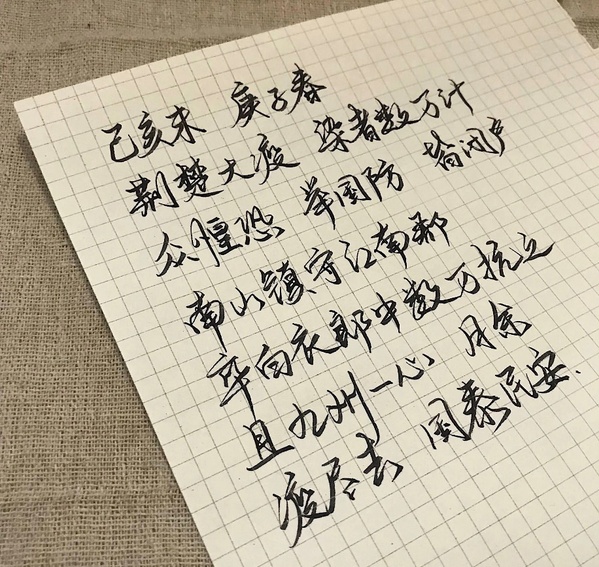 己亥末 庚子春
荆楚大疫 染者数万计
众惶恐 举国防 皆闭户
南山镇守江南都
率白衣郎中数万抗之
且九州一心 月余
疫尽去 国泰民安.